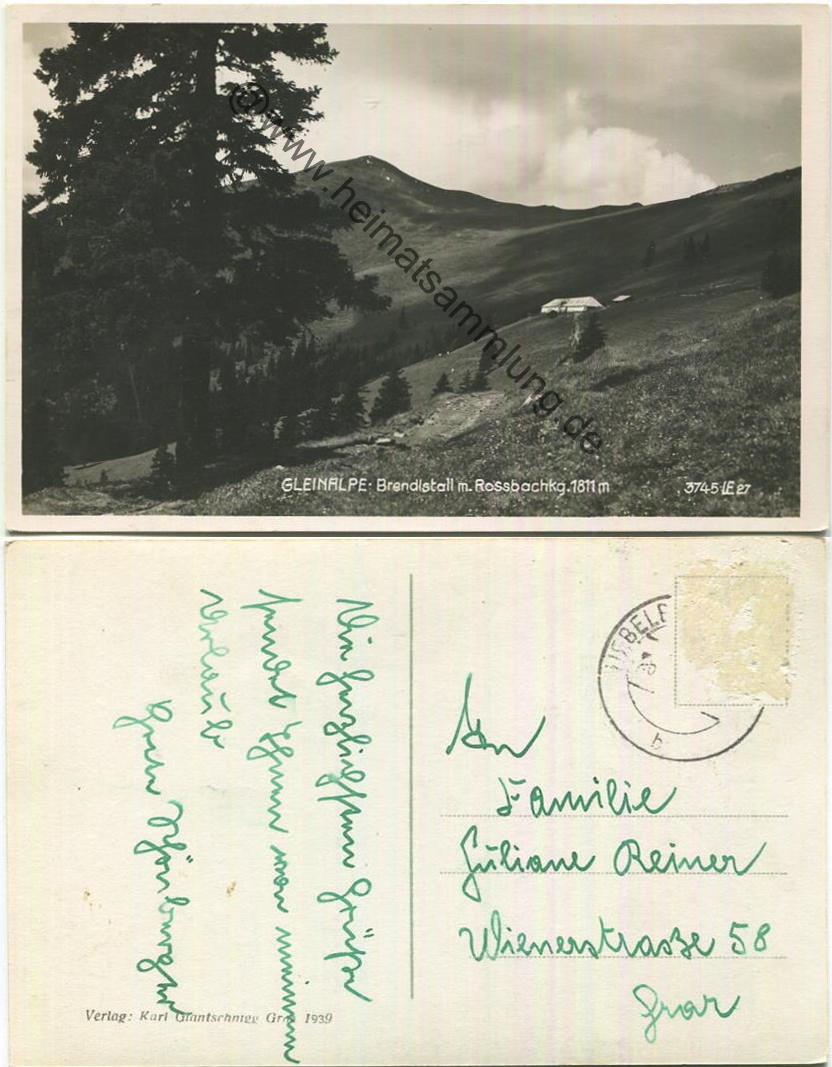 © www.heimatsammlung.de
GLEINALPE· Brendlstall m. Rossbachkg. 1811 m
3745·LE 27
Die herzlichsten Grüße
sendet Ihnen von meinem
Urlaub
UEBELB
b
An
Familie
Juliane Reiner
Wienerstrasze 58
Graz
Verlag: Karl Glantschnigg Graz 1939